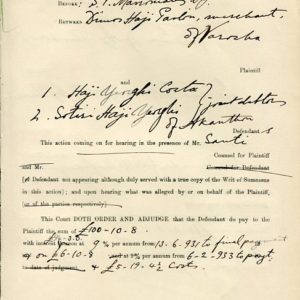 BEFORE:
BETWEEN Dimos Haji Pavlou, merchant,
of Varosha
Plaintiff
and
1. Haji Yorghi Costa
2. Sotiri Haji Yorghi
of Akanthou
Defendant s
This action coming on for hearing in the presence of Mr. Santi
Counsel for Plaintiff
and Mr. Counsel for Defendant
Defendant not appearing although duly served with a true copy of the Writ of Summons
in this action); and upon hearing what was alleged by or on behalf of the Plaintiff,
(or of the parties respectively)
This Court DOTH ORDER AND ADJUDGE that the Defendant do pay to the
Plaintiff the sum of £100-10-8.
with interest at 9 % per annum from 13.6.931 to final payment
on £6-10-8 at 9% per annum from 6-2-933 to
to date of judgment, & £5-19-4½ Costs.